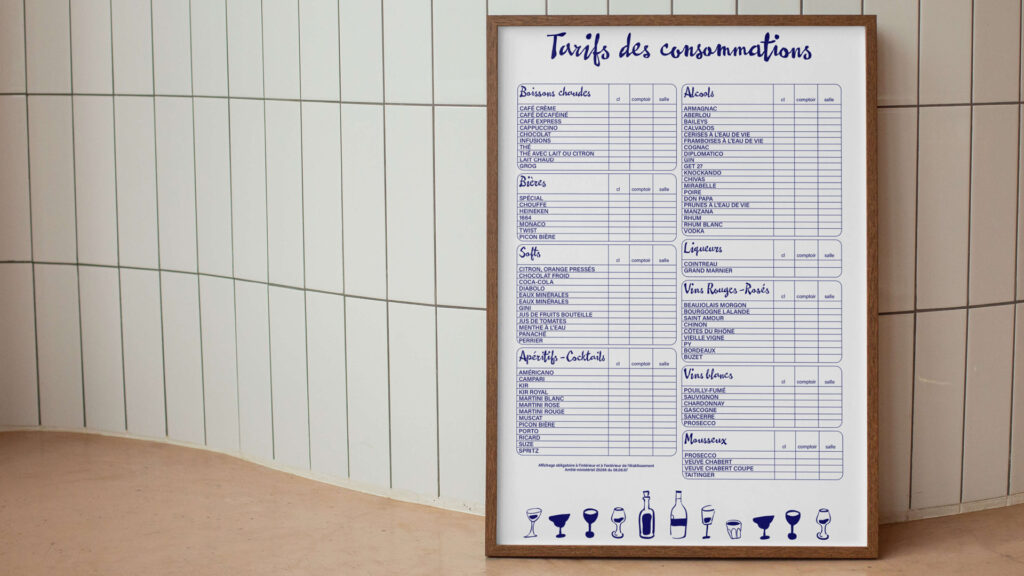 Tarifs des consommations
Boissons chaudes cl comptoir salle
CAFÉ CRÈME
CAFÉ DÉCAFÉINÉ
CAFÉ EXPRESS
CAPPUCCINO
CHOCOLAT
INFUSIONS
THÉ
THÉ AVEC LAIT OU CITRON
LAIT CHAUD
GROG
Bières cl comptoir salle
SPÉCIAL
CHOUFFE
HEINEKEN
1664
MONACO
TWIST
PICON BIÈRE
Softs cl comptoir salle
CITRON, ORANGE PRESSÉS
CHOCOLAT FROID
COCA-COLA
DIABOLO
EAUX MINÉRALES
EAUX MINÉRALES
GINI
JUS DE FRUITS BOUTEILLE
JUS DE TOMATES
MENTHE À L'EAU
PANACHÉ
PERRIER
Apéritifs - Cocktails cl comptoir salle
AMÉRICANO
CAMPARI
KIR
KIR ROYAL
MARTINI BLANC
MARTINI ROSE
MARTINI ROUGE
MUSCAT
PICON BIÈRE
PORTO
RICARD
SUZE
SPRITZ
Affichage obligatoire à l'intérieur et à l'extérieur de l'établissement
Alcools cl comptoir salle
ARMAGNAC
ABERLOU
BAILEYS
CALVADOS
CERISES À L'EAU DE VIE
FRAMBOISES À L'EAU DE VIE
COGNAC
DIPLOMATICO
GIN
GET 27
KNOCKANDO
CHIVAS
MIRABELLE
POIRE
DON PAPA
PRUNES À L'EAU DE VIE
MANZANA
RHUM
RHUM BLANC
VODKA
Liqueurs cl comptoir salle
COINTREAU
GRAND MARNIER
Vins Rouges - Rosés cl comptoir salle
BEAUJOLAIS MORGON
BOURGOGNE LALANDE
SAINT AMOUR
CHINON
CÔTES DU RHÔNE
VIEILLE VIGNE
PY
BORDEAUX
BUZET
Vins blancs cl comptoir salle
POUILLY-FUMÉ
SAUVIGNON
CHARDONNAY
GASCOGNE
SANCERRE
PROSECCO
Mousseux cl comptoir salle
PROSECCO
VEUVE CHABERT
VEUVE CHABERT COUPE
TAITINGER